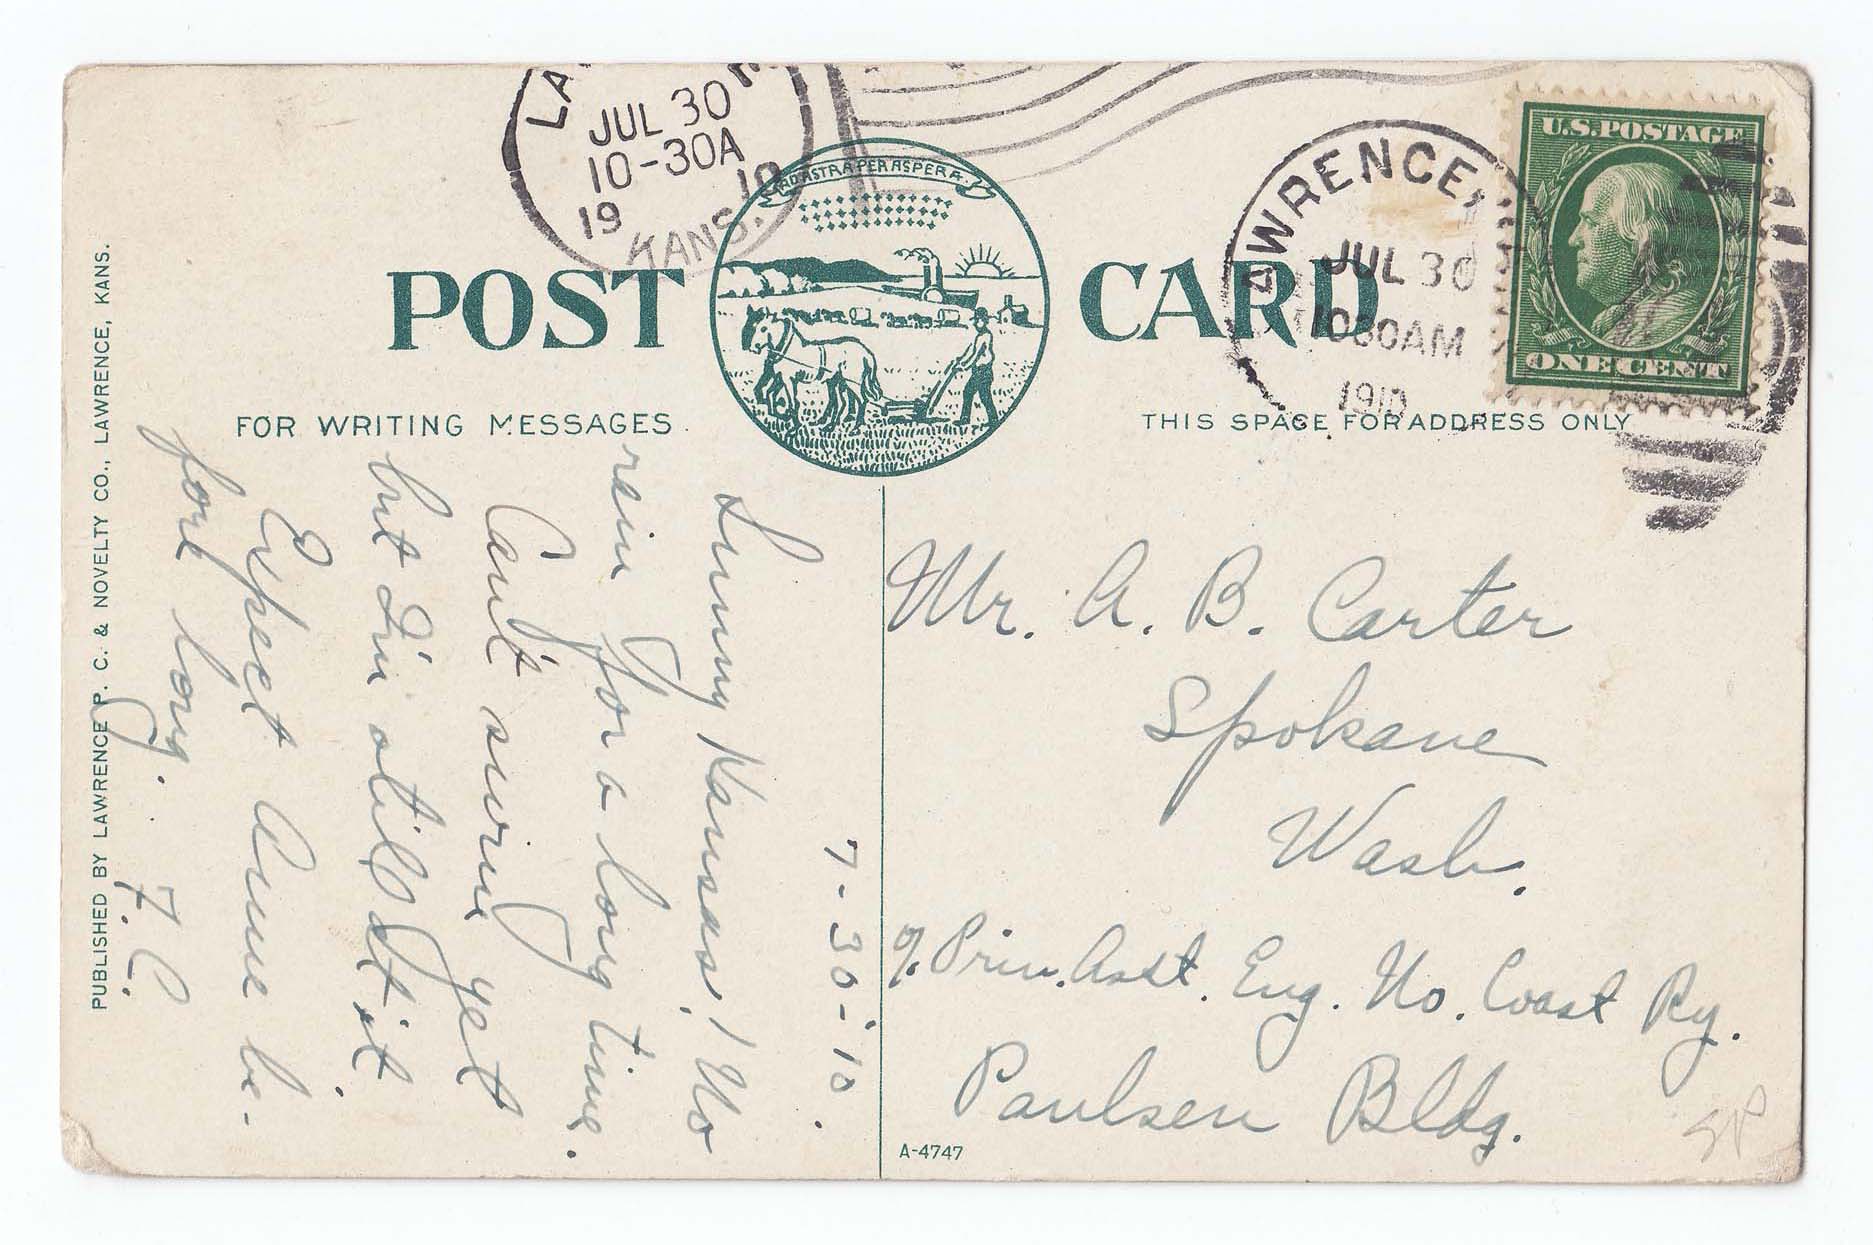 LA
JUL 30
10-30A
19 10
KANS.
AD ASTRA PER ASPERA.
LAWRENCE,
JUL 30
1030AM
1910
U.S. POSTAGE
ONE CENT
POST CARD
FOR WRITING MESSAGES.
THIS SPACE FOR ADDRESS ONLY
7-30-10.
Sunny Kansas! No
rain for a long time.
Can't swim yet
but I'm still at it.
Expect Anne be-
fore long.
F.C.
Mr. A. B. Carter
Spokane
Wash.
% Prin. Asst. Eng. No. Coast Ry.
Paulsen Bldg.
A-4747
PUBLISHED BY LAWRENCE P. C. & NOVELTY CO., LAWRENCE, KANS.